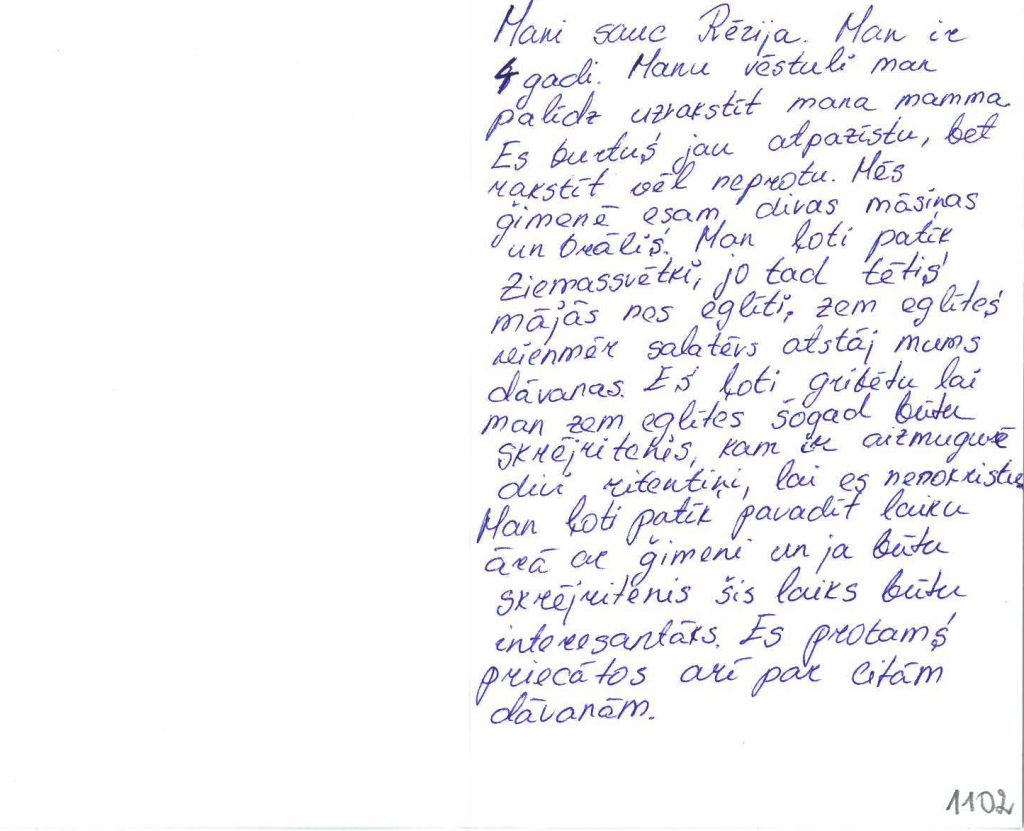 Mani sauc Rēzija. Man ir
4 gadi. Manu vēstuli man
palīdz uzrakstīt mana mamma.
Es burtus jau atpazīstu, bet
rakstīt vēl neprotu. Mēs
ģimenē esam divas māsiņas
un brālis. Man ļoti patīk
Ziemassvētki, jo tad tētis
mājās nes eglīti, zem eglītes
vienmēr salatēvs atstāj mums
dāvanas. Es ļoti gribētu lai
man zem eglītes šogad būtu
skrējritenis, kam ir aizmugurē
divi ritentiņi, lai es nenokristu.
Man ļoti patīk pavadīt laiku
ārā ar ģimeni un ja būtu
skrējritenis šis laiks būtu
interesantāks. Es protams
priecātos arī par citām
dāvanām.
1102